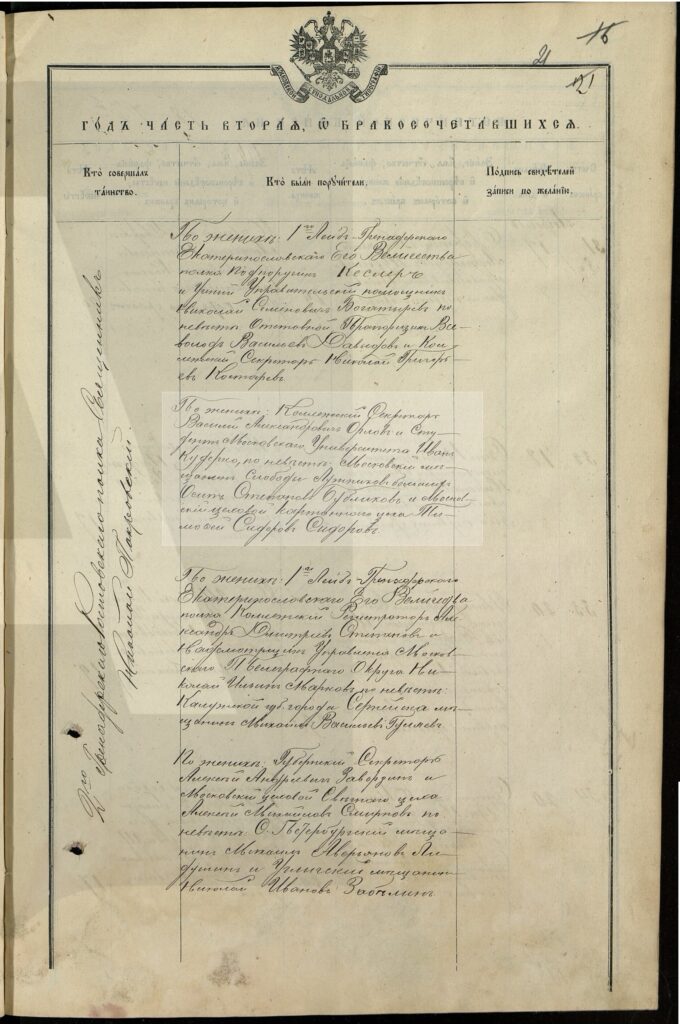 21
16
21
МОСКОВСКОЙ СѴНОДАЛЬНОЙ ТИПОГРАФІИ
ГОДЪ ЧАСТЬ ВТОРАЯ, Ѡ БРАКОСОЧЕТАВШИХСЯ.
Кто совершалъ таинство.
Кто были поручители.
Подпись свидѣтелей записи по желанію.
2го Гренадерскаго Ростовскаго полка Священникъ
Николай Покровскій.
По женихѣ: 1й Лейбъ-Гренадерскаго
Екатеринославскаго Его Величества
полка Подпоручикъ Кеслеръ
и Управительскій помощникъ
Николай Семеновичъ Богатыревъ по
невѣстѣ: Отставной Прапорщикъ Все-
володъ Васильевъ Давыдовъ и Кол-
лежскій Секретарь Николай Григорь-
евъ Костаревъ
По женихѣ: Коллежскій Секретарь
Василій Александровичъ Орловъ и Сту-
дентъ Московскаго Университета Иванъ
по невѣстѣ: Московскій мѣ-
щанинъ Слободы
Осипъ Степановъ Бубликовъ и Москов-
скій цеховой цеха Ти-
моѳей Сидоровъ Сидоровъ
По женихѣ: 1й Лейбъ-Гренадерскаго
Екатеринославскаго Его Величества
полка Коллежскій Регистраторъ Але-
ксандръ Дмитріевъ Степановъ и
Надсмотрщикъ Управленія Москов-
скаго Телеграфнаго Округа Ни-
колай Ильинъ Марковъ, по невѣстѣ:
Калужской губ. города мѣ-
щанинъ Михаилъ Васильевъ Гуляевъ
По женихѣ: Губернскій Секретарь
Алексѣй Андреевичъ и
Московскій цеховой цеха
Алексѣй Михайловъ Смирновъ по
невѣстѣ: С. Петербургскій мѣща-
нинъ Михаилъ Аверьяновъ
и Угличскій мѣщанинъ
Николай Ивановъ Забѣлинъ